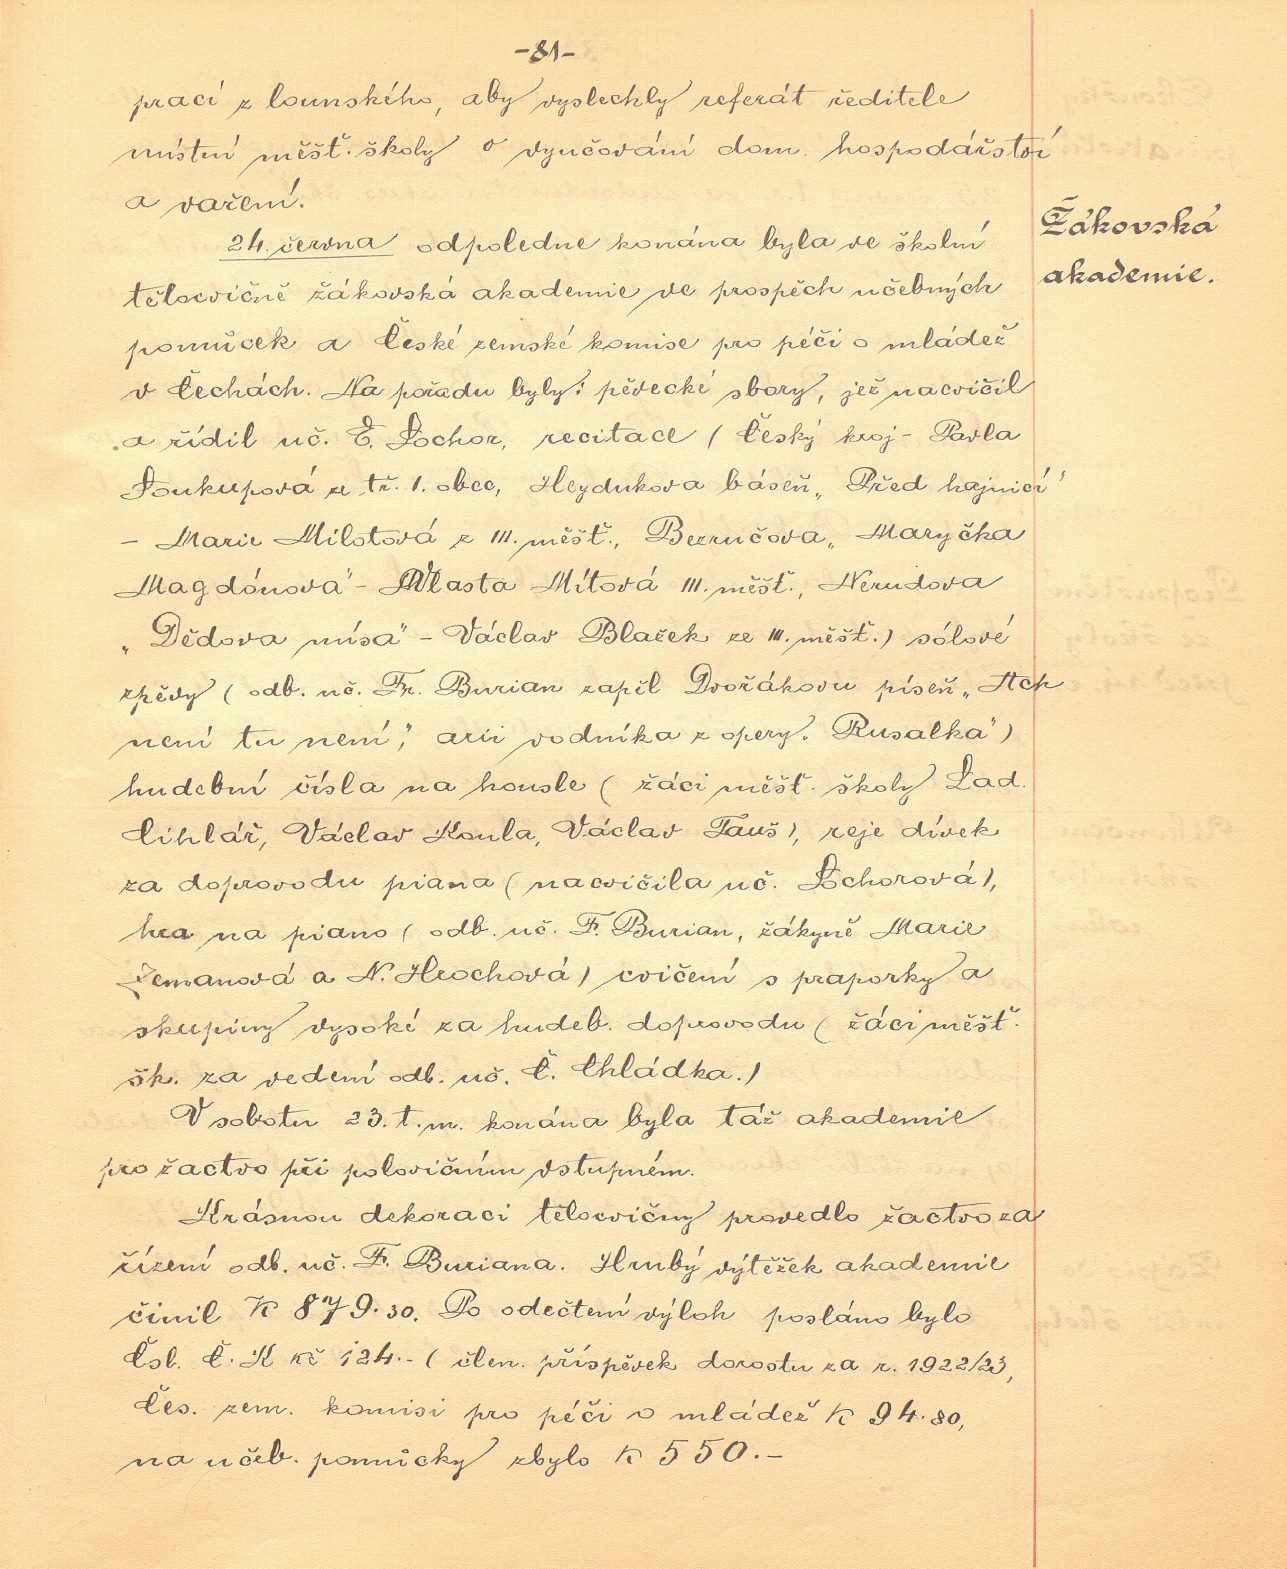 -81-
prací z lounského, aby vyslechly referát ředitele
místní měšť. školy o vyučování dom. hospodářství
a vaření.
24. června odpoledne konána byla ve školní
Žákovská
akademie.
tělocvičně žákovská akademie ve prospěch učebných
pomůcek a České zemské komise pro péči o mládež
v Čechách. Na pořadu byly: pěvecké sbory, jež nacvičil
a řídil uč. Č. Lochor, recitace ( Český kroj - Pavla
Soukupová ze tř. 1. obec, Heydukova báseň „ Před hájnicí"
- Marie Milotová z III. měšť., Bezručova „ Maryčka
Magdónova" - Vlasta Mítová III. měšť., Nerudova
„ Dědova mísa" - Václav Blažek ze III. měšť.) sólové
zpěvy ( odb. uč. Fr. Burian zapěl Dvořákovu píseň „ Ach
není tu není," arii vodníka z opery „ Rusalka")
hudební čísla na housle ( žáci měšť. školy Lad.
Cihlář, Václav Koula, Václav Tauš), reje dívek
za doprovodu piana ( nacvičila uč. Lochorová),
hra na piano ( odb. uč. F. Burian, žákyně Marie
Zemanová a N. Hrochová) cvičení s praporky a
skupiny vysoké za hudeb. doprovodu ( žáci měšť.
šk. za vedení odb. uč. Č. Chládka.)
V sobotu 23. t. m. konána byla táž akademie
pro žactvo při polovičním vstupném.
Krásnou dekoraci tělocvičny provedlo žactvo za
řízení odb. uč. F. Buriana. Hrubý výtěžek akademie
činil K 879.30. Po odečtení výloh posláno bylo
Čsl. Č. K Kč 124.- ( člen. příspěvek dorostu za r. 1922/23,
Čes. zem. komisi pro péči o mládež K 94.80,
na učeb. pomůcky zbylo K 550.-